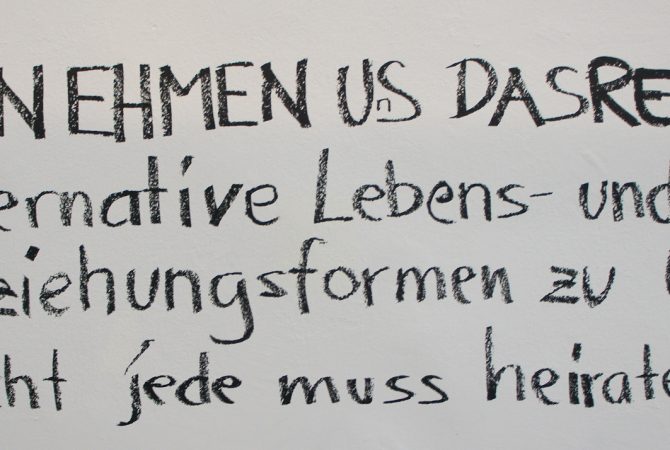 N EHMEN UnS DASRE
ernative Lebens- und
ziehungsformen zu
cht jede muss heirate